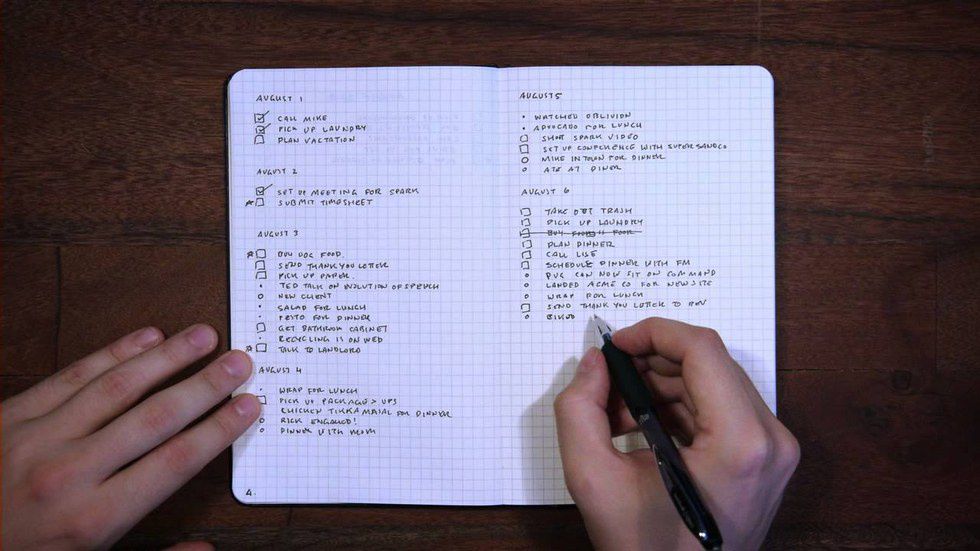 AUGUST 1
CALL MIKE
PICK UP LAUNDRY
PLAN VACTATION
AUGUST 2
SET UP MEETING FOR SPARK
SUBMIT TIMESHEET
AUGUST 3
BUY DOG FOOD.
SEND THANK YOU LETTER
PICK UP PAPER.
TED TALK ON EVOLUTION OF SPEECH
NEW CLIENT
SALAD FOR LUNCH
PESTO FOR DINNER
GET BATHROOM CABINET
RECYCLING IS ON WED
TALK TO LANDLORD
AUGUST 4
WRAP FOR LUNCH
PICK UP PACKAGE > UPS
CHICKEN TIKKA MASAL FOR DINNER
RICK ENGAGED!
DINNER WITH MOM
4.
AUGUST 5
WATCHED OBLIVION
ADVOCADO FOR LUNCH
SHOOT SPARK VIDEO
SET UP CONFERENCE WITH SUPERSANDCO
MIKE IN TOWN FOR DINNER
ATE AT DINER
AUGUST 6
TAKE OUT TRASH
PICK UP LAUNDRY
BUY FOOD
PLAN DINNER
CALL LISE
SCHEDULE DINNER WITH FM
PUG CAN NOW SIT ON COMMAND
LANDED ACME CO FOR NEW SITE
WRAP FOR LUNCH
SEND THANK YOU LETTER TO REV
BIKED